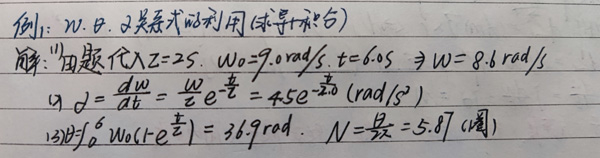 例1: W. θ. α关系式的利用(求导+积分)
解:(1)由题代入Z=2S. W₀=9.0rad/s. t=6.0s ⇒ W=8.6rad/s
(2) α=dw/dt=W/z e^(-t/z)=4.5e^(-t/2.0) (rad/s²)
(3)θ=∫₀⁶ W₀(1-e^(t/z))=36.9rad. N=θ/2π=5.87(圈)